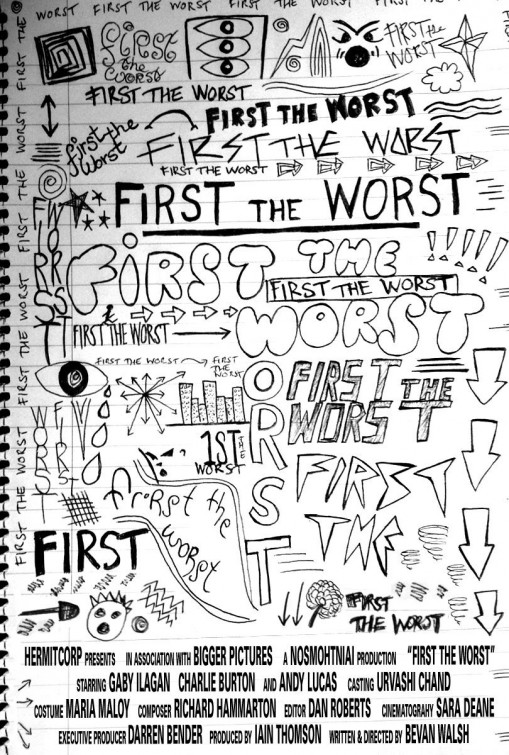 FIRST THE WORST FIRST THE WORST FIRST THE WORST
FIRST THE WORST FIRST THE WORST FIRST THE WORST FIRST THE
First the Worst
FIRST the WORST
FIRST THE WORST
FIRST THE WORST
first the worst
FIRST THE WORST
FIRST THE WORST
FIRST THE WORST
FIRST
WORST
FiRST THE
WORST
FIRST THE WORST
FIRST THE WORST
FIRST THE WORST
FIRST THE WORST
ORST
FIRST THE
WORST
1ST THE
WORST
FIRST
WORST
first the
worst
FIRST
THE
FIRST
FIRST
THE WORST
HERMITCORP PRESENTS IN ASSOCIATION WITH BIGGER PICTURES A NOSMOHTNIAI PRODUCTION "FIRST THE WORST"
STARRING GABY ILAGAN CHARLIE BURTON AND ANDY LUCAS CASTING URVASHI CHAND
COSTUME MARIA MALOY COMPOSER RICHARD HAMMARTON EDITOR DAN ROBERTS CINEMATOGRAHY SARA DEANE
EXECUTIVE PRODUCER DARREN BENDER PRODUCED BY IAIN THOMSON WRITTEN & DIRECTED BY BEVAN WALSH